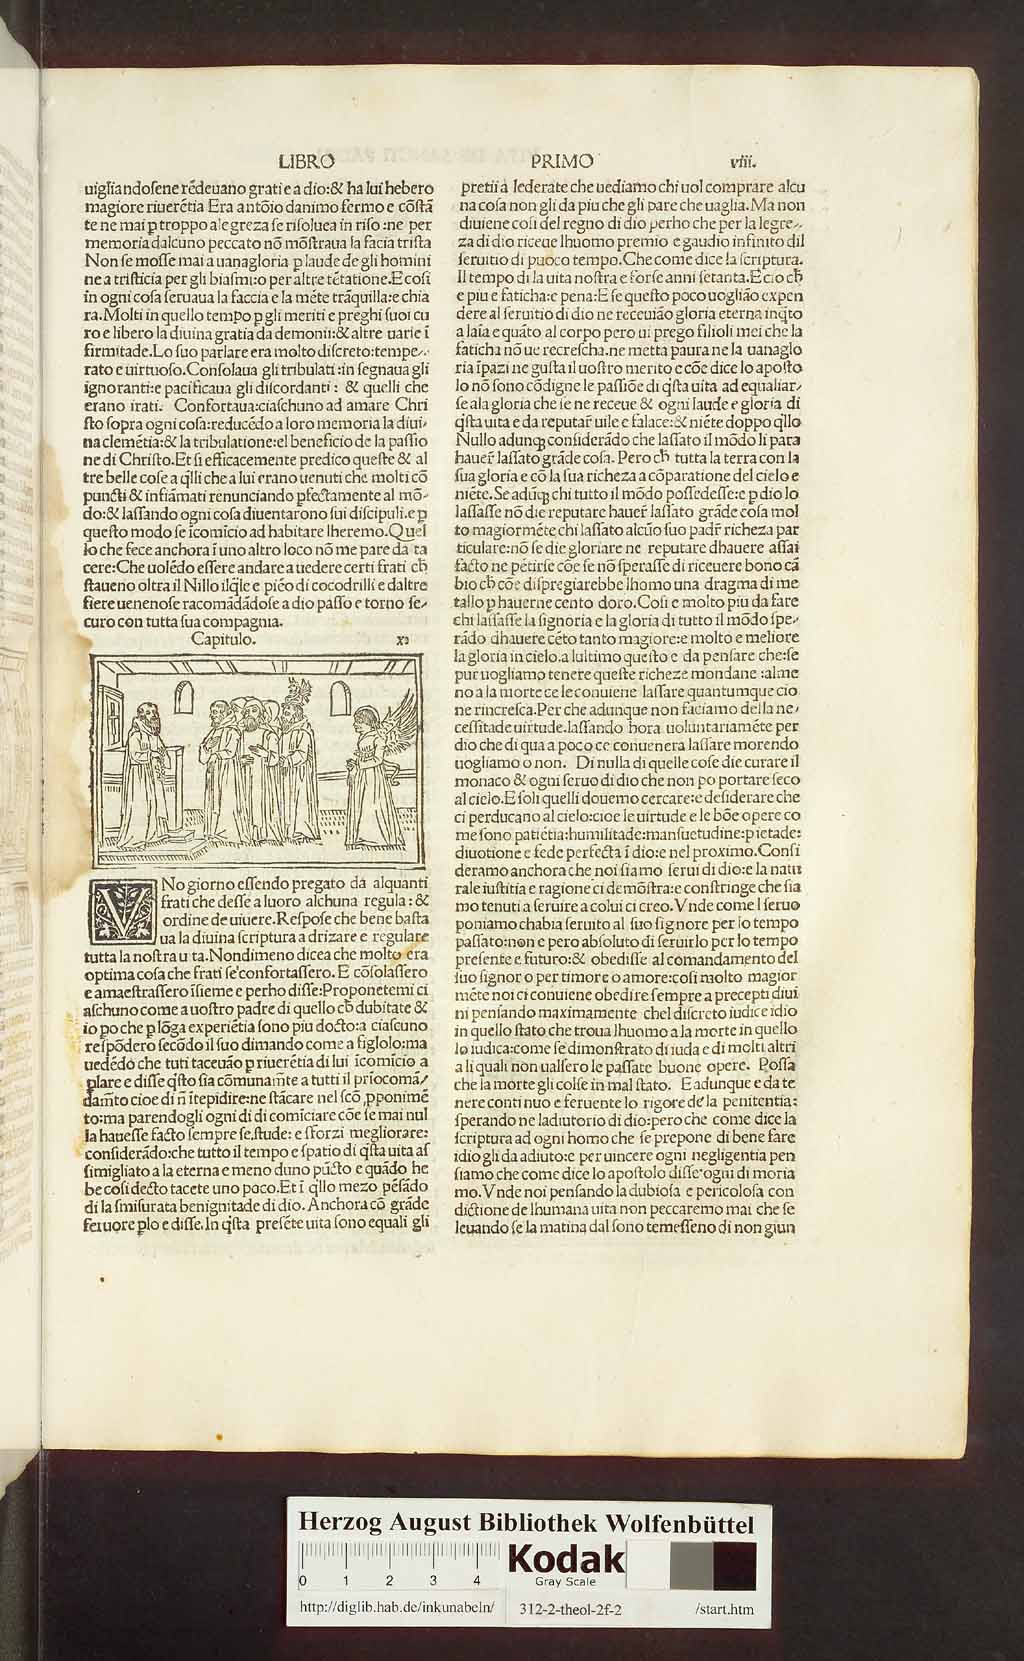 LIBRO PRIMO viii.
uigliandosene rēdeuano grati e a dio:& ha lui hebero
magiore riuerētia Era antōio danimo fermo e cōstā
te ne mai p troppo alegreza se risoluea in riso:ne per
memoria dalcuno peccato nō mōstraua la facia trista
Non se mosse mai a uanagloria p laude de gli homini
ne a tristicia per gli biasmi:o per altre tētatione.E cosi
in ogni cosa seruaua la faccia e la mēte trāquilla:e chia
ra.Molti in quello tempo p gli meriti e preghi suoi cu
ro e libero la diuina gratia da demonii:& altre uarie ī
firmitade.Lo suo parlare era molto discreto:tempe-
rato e uirtuoso.Consolaua gli tribulati:insegnaua gli
ignoranti:e pacificaua gli discordanti: & quelli che
erano irati. Confortaua:ciaschuno ad amare Chri
sto sopra ogni cosa:reducēdo a loro memoria la diui-
na clemētia:& la tribulatione:el beneficio de la passio
ne di Christo.Et si efficacemente predico queste & al
tre belle cose a q̄lli che a lui erano uenuti che molti cō
puncti & infiāmati renunciando pfectamente al mō-
do:& lassando ogni cosa diuentarono sui discipuli.e p
questo modo se īcomīcio ad habitare lheremo.Quel
lo che fece anchora ī uno altro loco nō me pare da ta
cere:Che uolēdo essere andare a uedere certi frati ch̄
staueno oltra il Nillo ilq̄le e piēo di cocodrilli e daltre
fiere uenenose racomādādose a dio passo e torno se-
curo con tutta sua compagnia.
Capitulo. xi
VNo giorno essendo pregato da alquanti
frati che desse a luoro alchuna regula:&
ordine de uiuere.Respose che bene basta
ua la diuina scriptura a drizare e regulare
tutta la nostra uita.Nondimeno dicea che molto era
optima cosa che frati se confortassero. E cōsolassero
e amaestrassero īsieme e perho disse:Proponetemi ci
aschuno come a uostro padre di quello ch̄ dubitate &
io po che p lōga experiētia sono piu docto:a ciascuno
respōdero secōdo il suo dimando come a figlolo:ma
uedēdo che tuti taceuāo p riuerētia di lui īcomīcio a
plare e disse q̄sto sia cōmunam̄te a tutti il prīocomā-
dam̄to cioe di n̄ ītepidire:ne stācare nel scō pponimē
to:ma parendogli ogni di di comīciare cōe se mai nul
la hauesse facto sempre se.stude: e sforzi megliorare:
considerādo:che tutto il tempo e spatio di q̄sta uita as
simigliato a la eterna e meno duno pūcto e quādo he
be cosi decto tacete uno poco.Et ī q̄llo mezo pēsādo
di la smisurata benignitade di dio. Anchora cō grāde
feruore plo e disse.In q̄sta presēte uita sono equali gli
pretii a lederate che uediamo chi uol comprare alcu
na cosa non gli da piu che gli pare che uaglia.Ma non
diuiene cosi del regno di dio perho che per la legre-
za di dio riceue lhuomo premio e gaudio infinito dil
seruitio di puoco tempo.Che come dice la scriptura.
Il tempo di la uita nostra e forse anni setanta.E cio ch̄
e piu e faticha:e pena:E se questo poco uogliāo expen
dere al seruitio di dio ne receuiāo gloria eterna inq̄to
a laīa e quāto al corpo pero ui prego filioli mei che la
faticha nō ue recrescha.ne metta paura ne la uanaglo
ria īpazi ne gusta il uostro merito e cōe dice lo aposto
lo nō sono cōdigne le passiōe di q̄sta uita ad equaliar-
se ala gloria che ie ne receue & ogni laude e gloria di
q̄sta uita e da reputar̄ uile e falace:& niēte doppo q̄llo
Nullo adunq; considerādo che lassato il mōdo li para
hauer̄ lassato grāde cosa. Pero ch̄ tutta la terra con la
sua gloria e cō la sua richeza a cōparatione del cielo e
niēte.Se adūq; chi tutto il mōdo possedesse:e p dio lo
lassasse nō die reputare hauer̄ lassato grāde cosa mol
to magiormēte chi lassato alcūo suo padr̄ richeza par
ticulare:nō se die gloriare ne reputare dhauere assai
facto ne pētirse cōe se nō sperasse di riceuere bono cā
bio ch̄ cōe dispregiarebbe lhomo una dragma di me
tallo p hauerne cento doro.Cosi e molto piu da fare
chi lassasse la signoria e la gloria di tutto il mōdo spe-
rādo dhauere cēto tanto magiore:e molto e meliore
la gloria in cielo.a lultimo questo e da pensare che:se
pur uogliamo tenere queste richeze mondane :alme
no a la morte ce le conuiene lassare quantumque cio
ne rincresca.Per che adunque non faciamo della ne-
cessitade uirtude.lassando hora uoluntariamēte per
dio che di qua a poco ce conuenera lassare morendo
uogliamo o non. Di nulla di quelle cose die curare il
monaco & ogni seruo di dio che non po portare seco
al cielo.E soli quelli douemo cercare:e desiderare che
ci perducano al cielo:cioe le uirtude e le bōe opere co
me sono patiētia:humilitade:mansuetudine:pietade:
diuotione e fede perfecta ī dio:e nel proximo.Consi
deramo anchora che noi siamo serui di dio:e la natu
rale iustitia e ragione ci demōstra:e constringe che sia
mo tenuti a seruire a colui ci creo.Vnde come l seruo
poniamo chabia seruito al suo signore per lo tempo
passato:non e pero absoluto di seruirlo per lo tempo
presente e futuro:& obedisse al comandamento del
suo signor o per timore o amore:cosi molto magior
mēte noi ci conuiene obedire sempre a precepti diui
ni pensando maximamente chel discreto iudice idio
in quello stato che troua lhuomo a la morte in quello
lo iudica:come se dimonstrato di iuda e di molti altri
a li quali non ualsero le passate buone opere. Possa
che la morte gli colse in mal stato. E adunque e da te
nere continuo e feruente lo rigore de la penitentia:
sperando ne ladiutorio di dio:pero che come dice la
scriptura ad ogni homo che se prepone di bene fare
idio gli da adiuto:e per uincere ogni negligentia pen
siamo che come dice lo apostolo disse ogni di moria
mo.Vnde noi pensando la dubiosa e pericolosa con
dictione de lhumana uita non peccaremo mai che se
leuando se la matina dal sono temesseno di non giun
Herzog August Bibliothek Wolfenbüttel
0 1 2 3 4
Kodak
Gray Scale
http://diglib.hab.de/inkunabeln/ 312-2-theol-2f-2 /start.htm